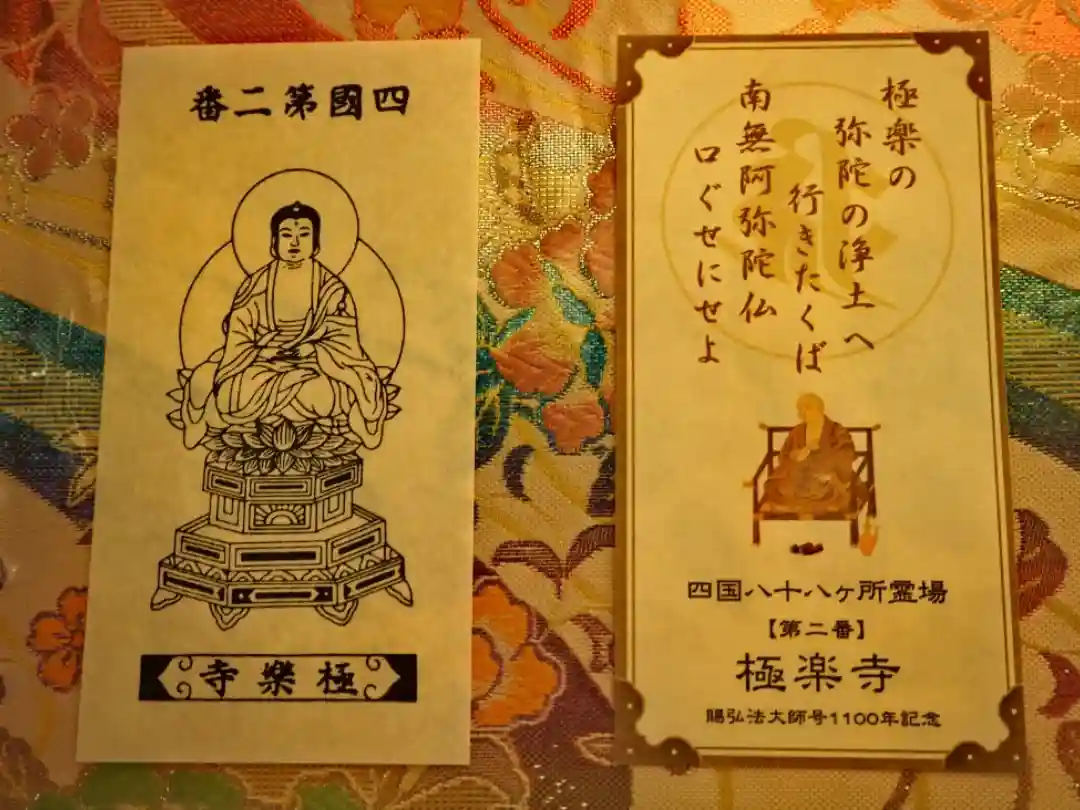 四國第二番
極樂寺
極楽の
弥陀の浄土へ
行きたくば
南無阿弥陀仏
口ぐせにせよ
四国八十八ヶ所霊場
【第二番】
極楽寺
賜弘法大師号1100年記念